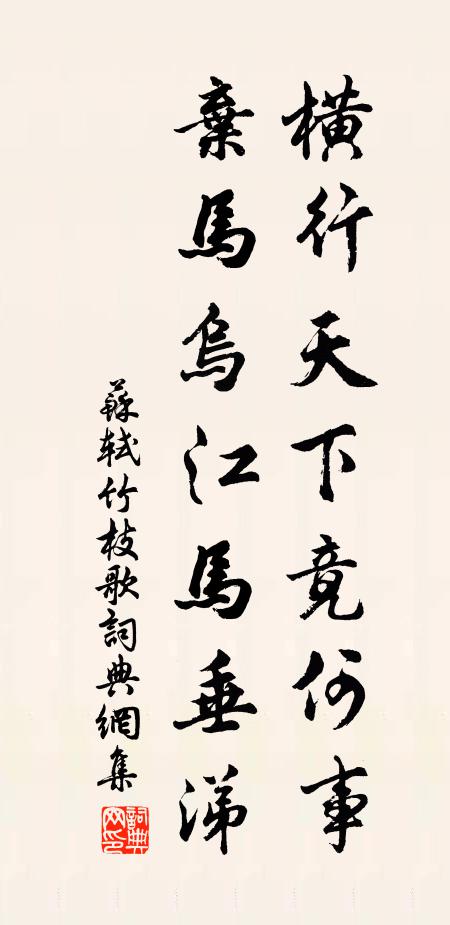 橫行天下竟何事
棄馬烏江馬垂涕
蘇軾竹枝歌詞典網集
詞典网印